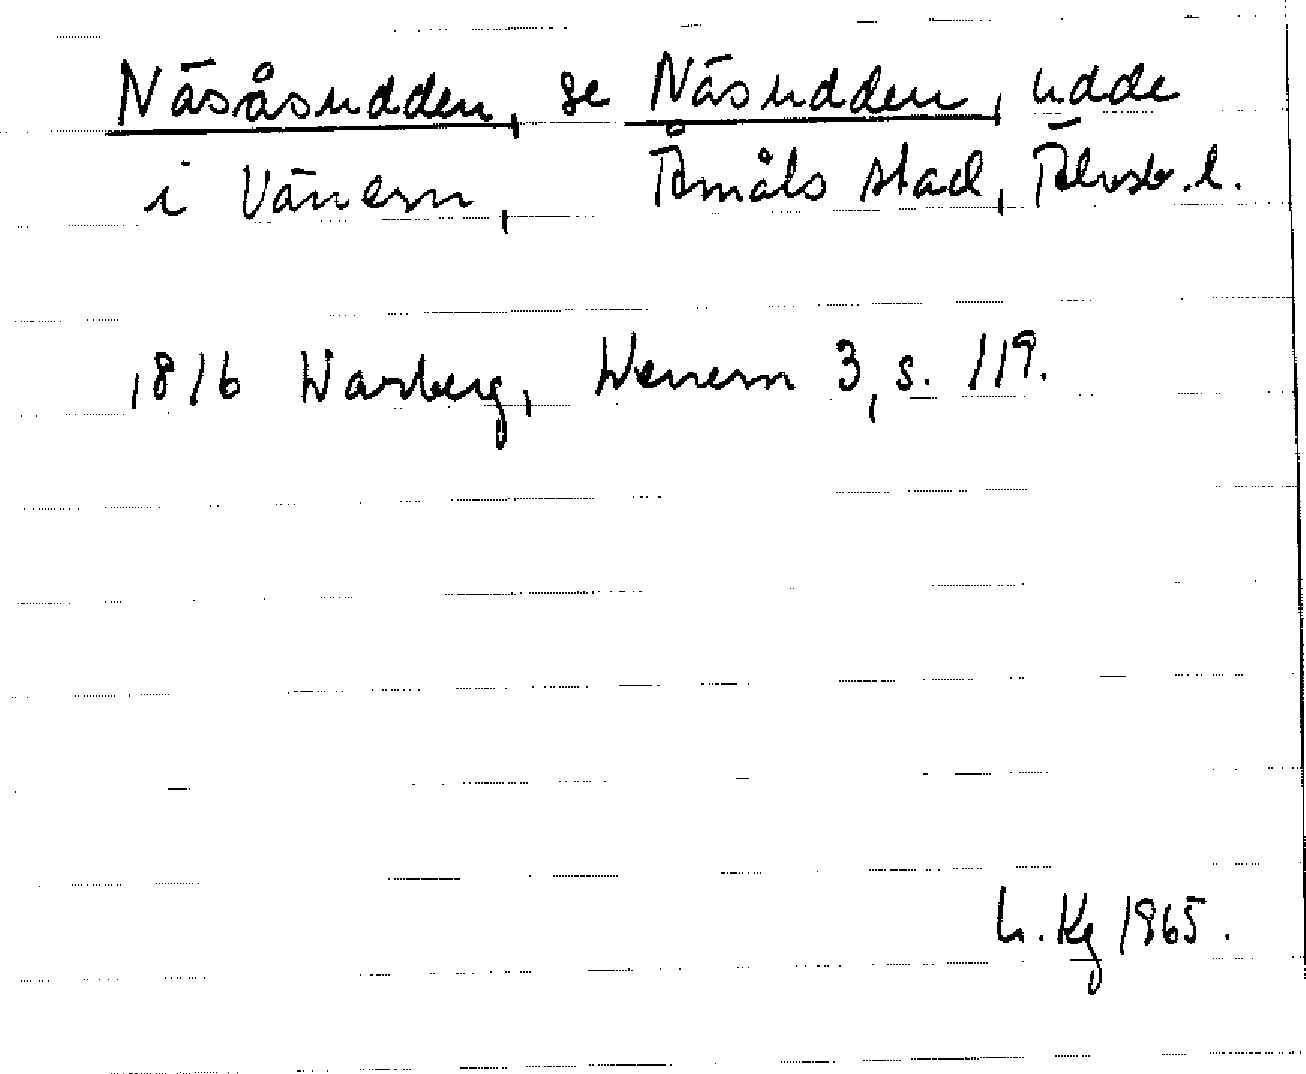 Näsåsudden, se Näsudden, udde
i Vänern, Åmåls stad, Älvsb. l.
1816 Warberg, Wenern 3, s. 119.
L. Kg 1965.